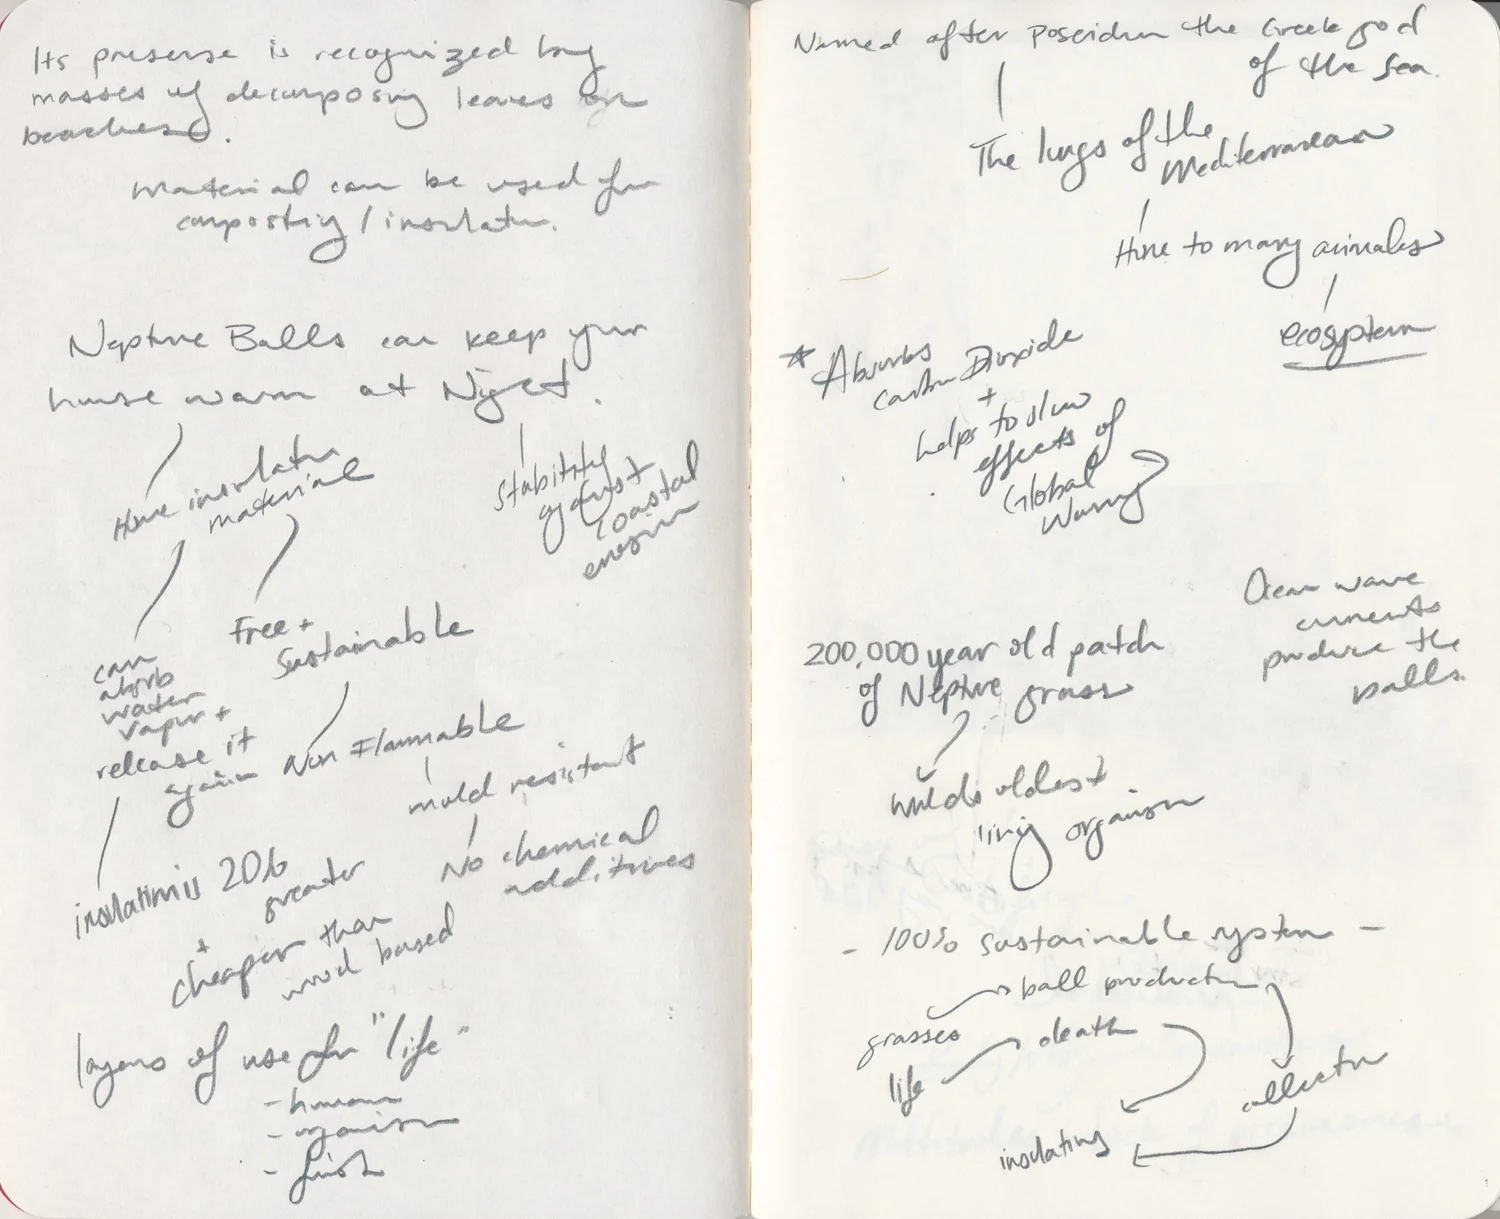 Its presense is recognized by
masses of decomposing leaves on
beaches.
Material can be used for
composting / insulation.
Neptune Balls can keep your
house warm at Night.
Home insulation
material
stability
against
coastal
erosion
Free +
Sustainable
can
absorb
water
vapor +
release it
again
Non Flammable
mold resistant
No chemical
additives
insulation is 20%
greater
+
cheaper than
wood based
layers of use for "life"
- human
- organism
-
Named after Poseidon the Greek god
of the Sea.
The lungs of the
Mediterranean
Home to many animales
ecosystem
* Absorbs
carbon Dioxide
+
helps to slow
effects of
Global
Warming
Ocean wave
currents
produce the
balls.
200,000 year old patch
of Neptune grass
worlds oldest
living organism
- 100% sustainable system -
ball production
grasses
death
life
collection
insulating